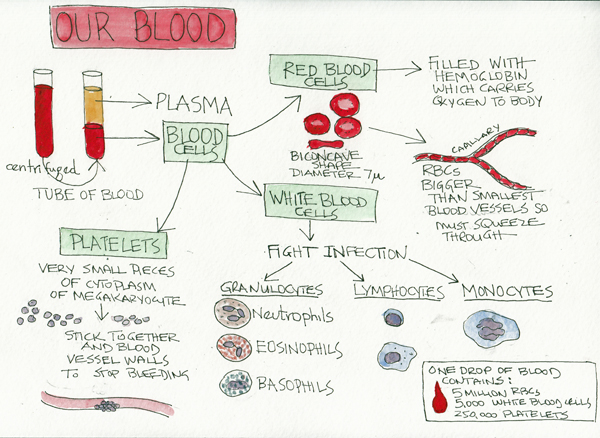 OUR BLOOD
PLASMA
BLOOD
CELLS
centrifuged
TUBE OF BLOOD
RED BLOOD
CELLS
FILLED WITH
HEMOGLOBIN
WHICH CARRIES
OXYGEN TO BODY
BICONCAVE
SHAPE
DIAMETER 7µ
CAPILLARY
RBCs
BIGGER
THAN SMALLEST
BLOOD VESSELS SO
MUST SQUEEZE
THROUGH
WHITE BLOOD
CELLS
FIGHT INFECTION
PLATELETS
VERY SMALL PIECES
OF CYTOPLASM
OF MEGAKARYOCYTE
STICK TOGETHER
AND BLOOD
VESSEL WALLS
TO STOP BLEEDING
GRANULOCYTES
Neutrophils
EOSINOPHILS
BASOPHILS
LYMPHOCYTES
MONOCYTES
ONE DROP OF BLOOD
CONTAINS:
5 MILLION RBCs
5,000 WHITE BLOOD CELLS
250,000 PLATELETS